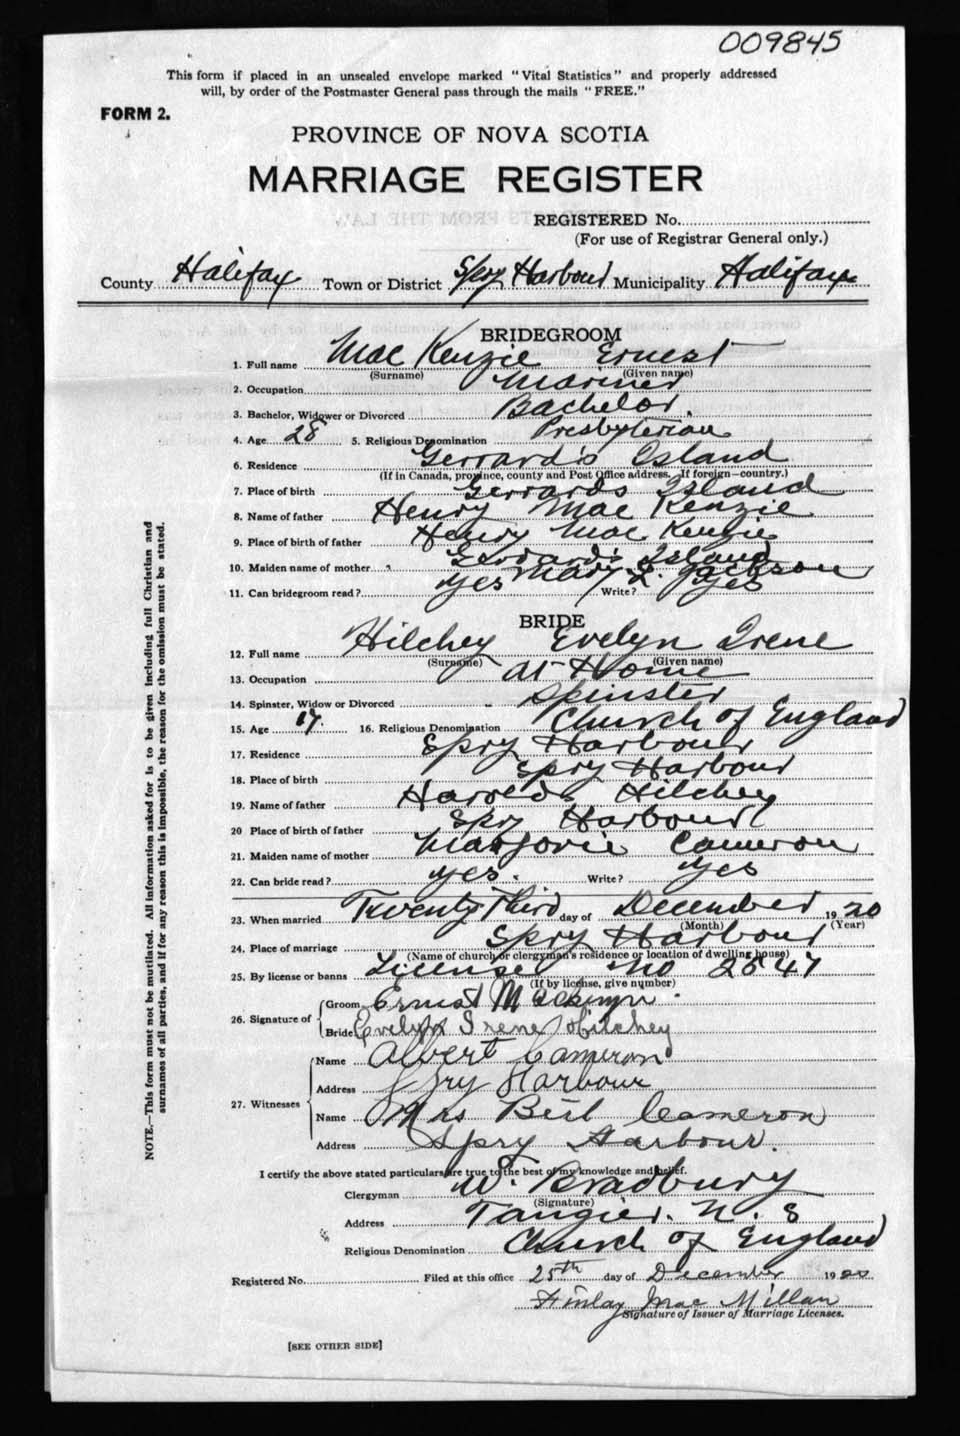 009845
This form if placed in an unsealed envelope marked "Vital Statistics" and properly addressed
will, by order of the Postmaster General pass through the mails "FREE."
FORM 2.
PROVINCE OF NOVA SCOTIA
MARRIAGE REGISTER
REGISTERED No.
(For use of Registrar General only.)
County Halifax Town or District Spry Harbour Municipality Halifax
BRIDEGROOM
1. Full name Mac Kenzie Ernest
(Surname) (Given name)
2. Occupation Mariner
3. Bachelor, Widower or Divorced Bachelor.
4. Age 28 5. Religious Denomination Presbyterian
6. Residence Gerrard's Island
(If in Canada, province, county and Post Office address. If foreign—country.)
7. Place of birth Gerrards Island
8. Name of father Henry Mac Kenzie
9. Place of birth of father Henry Mac Kenzie
Gerrard's Island
10. Maiden name of mother Mary L. Jackson
11. Can bridegroom read? Yes Write? Yes
BRIDE
12. Full name Hilchey Evelyn Irene
(Surname) (Given name)
13. Occupation At Home
14. Spinster, Widow or Divorced Spinster
15. Age 17. 16. Religious Denomination Church of England
17. Residence Spry Harbour
18. Place of birth Spry Harbour
19. Name of father Harold Hilchey
20 Place of birth of father Spry Harbour
21. Maiden name of mother Marjorie Cameron
22. Can bride read? Yes. Write? Yes
23. When married Twenty Third day of December 1920
(Month) (Year)
24. Place of marriage Spry Harbour
(Name of church or clergyman's residence or location of dwelling house)
25. By license or banns License No 2547
(If by license, give number)
26. Signature of Groom Ernest
Bride Evelyn Irene Hilchey
27. Witnesses Name Albert Cameron
Address Spry Harbour
Name Mrs Cameron
Address Spry Harbour.
I certify the above stated particulars are true to the best of my knowledge and belief.
Clergyman W. Bradbury
(Signature)
Address Tangier. N. S
Religious Denomination Church of England
Registered No. Filed at this office 25th day of December 1920
Finlay Mac Millan
Signature of Issuer of Marriage Licenses.
[SEE OTHER SIDE]
NOTE.—This form must not be mutilated. All information asked for is to be given including full Christian and
surnames of all parties, and if for any reason this is impossible, the reason for the omission must be stated.